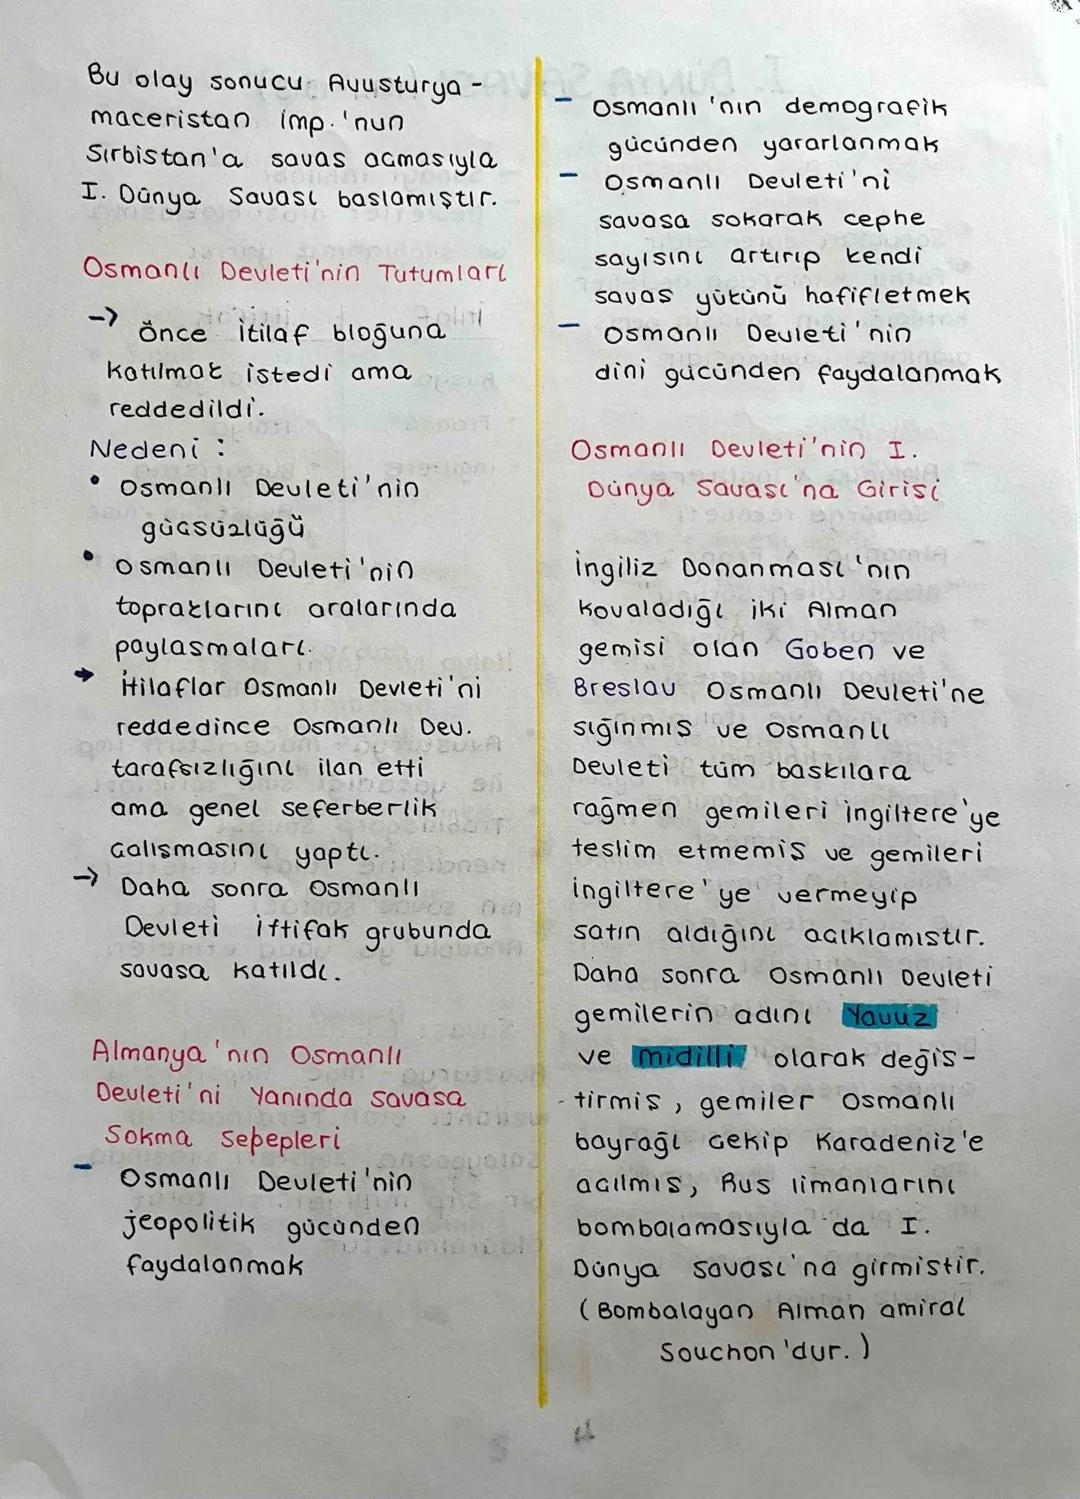 Bu olay sonucu Avusturya -
maceristan imp.'nun
Sırbistan'a savas acmasıyla
I. Dünya Savası baslamıştır.
Osmanlı Devleti'nin Tutumları
→ Önce itilaf bloğuna
katılmak istedi ama
reddedildi.
Nedeni :
• Osmanlı Devleti'nin
gücsüzlüğü
• Osmanlı Devleti'nin
topraklarını aralarında
paylasmaları.
→ İtilaflar Osmanlı Devleti'ni
reddedince Osmanlı Dev.
tarafsızlığını ilan etti
ama genel seferberlik
calısmasını yaptı.
→ Daha sonra Osmanlı
Devleti ittifak grubunda
savasa katıldı.
Almanya'nın Osmanlı
Devleti'ni Yanında savasa
Sokma Sebepleri
- Osmanlı Devleti'nin
jeopolitik gücünden
faydalanmak
- Osmanlı'nın demografik
gücünden yararlanmak
- Osmanlı Devleti'ni
savasa sokarak cephe
sayısını artırıp kendi
savas yükünü hafifletmek
- Osmanlı Devleti'nin
dini gücünden faydalanmak
Osmanlı Devleti'nin I.
Dünya Savası'na Girisi
İngiliz Donanması'nın
kovaladığı iki Alman
gemisi olan Goben ve
Breslau Osmanlı Devleti'ne
sığınmıs ve Osmanlı
Devleti tüm baskılara
rağmen gemileri ingiltere'ye
teslim etmemis ve gemileri
ingiltere'ye vermeyip
satın aldığını acıklamıstır.
Daha sonra Osmanlı Devleti
gemilerin adını Yavuz
ve midilli olarak değis-
tirmis, gemiler Osmanlı
bayrağı cekip Karadeniz'e
acılmıs, Rus limanlarını
bombalamasıyla da I.
Dünya savası'na girmistir.
(Bombalayan Alman amiral
Souchon'dur.)